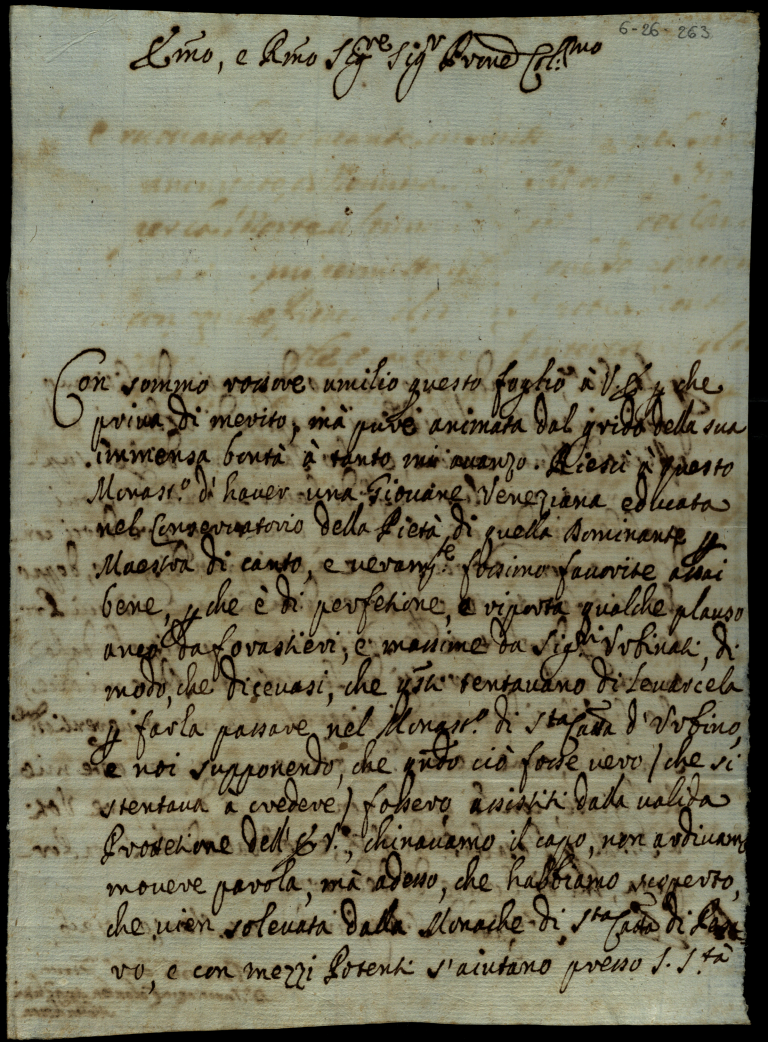 6-26-263
Emo, e Rmo Sigre Sigr Prone Col:mo
Con sommo rossore umilio questo foglio à V. E. p che
priva di merito, mà pure animata dal grido della sua
immensa bontà à tanto mi avanzo. Riescì à questo
Monast.o d'haver una Giovane Veneziana educata
nel Conservatorio della Pietà di quella Dominante p
Maestra di canto, e veram.te fossimo favorite assai
bene, p che è di perfetione, e riporta qualche plauso
anco da forastieri, e massime da Sig.ri Urbinati, di
modo, che dicevasi, che qsti tentavano di levarcela
p farla passare nel Monast.o di Sta Catta d'Urbino,
e noi supponendo, che qndo ciò fosse vero / che si
stentava à credere / fossero assistiti dalla valida
Protetione dell'E. V.a, chinavamo il capo, non ardivamo
movere parola, mà adesso, che habbiamo scoperto,
che vien solevata dalla Monache di Sta Catta di Pesa-
ro, e con mezzi Potenti s'aiutano presso S. Stà